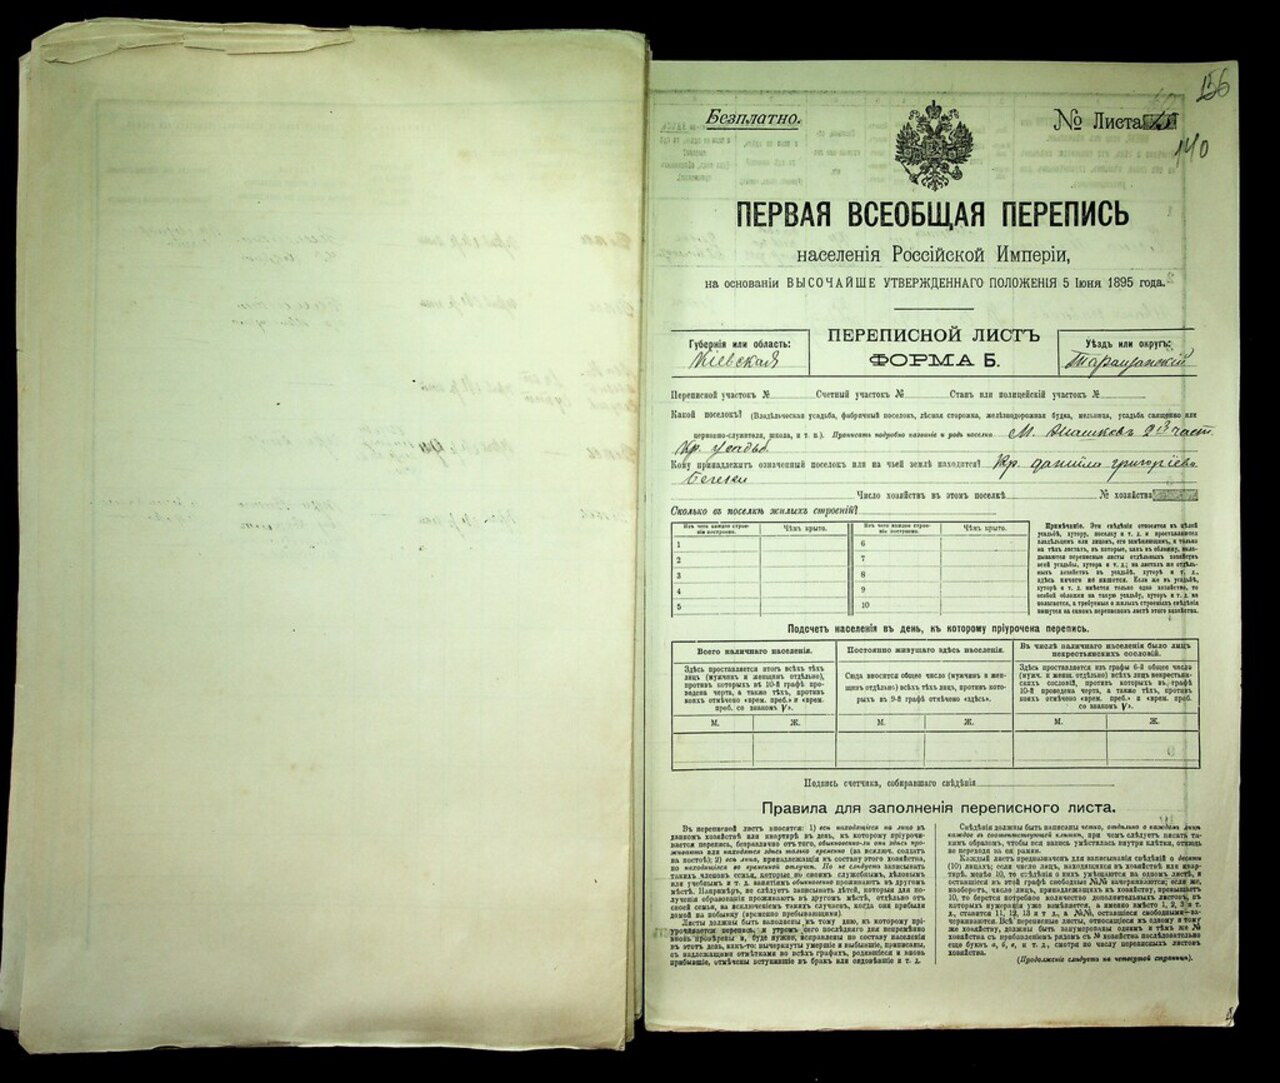 156
Безплатно.
№ Листа
140
ПЕРВАЯ ВСЕОБЩАЯ ПЕРЕПИСЬ
населенія Россійской Имперіи,
на основаніи ВЫСОЧАЙШЕ УТВЕРЖДЕННАГО ПОЛОЖЕНІЯ 5 Іюня 1895 года.
ПЕРЕПИСНОЙ ЛИСТЪ
ФОРМА Б.
Губернія или область:
Кіевская
Уѣздъ или округъ:
Таращанскій
Переписной участокъ № Счетный участокъ № Станъ или полицейскій участокъ №
Какой поселокъ? (Владѣльческая усадьба, фабричный поселокъ, лѣсная сторожка, желѣзнодорожная будка, мельница, усадьба священно или
церковно-служителя, школа, и т. п.). Прописать подробно названіе и родъ поселка М. част.
Кр. усадьб.
Кому принадлежитъ означенный поселокъ или на чьей землѣ находится? Кр. Данило Григоріевъ
Число хозяйствъ въ этомъ поселкѣ № хозяйства
Сколько въ поселкѣ жилыхъ строеній?
Изъ чего каждое строеніе построено. Чѣмъ крыто. Изъ чего каждое строеніе построено. Чѣмъ крыто.
1 6
2 7
3 8
4 9
5 10
Примѣчаніе. Эти свѣдѣнія относятся къ цѣлой
усадьбѣ, хутору, поселку и т. д. и проставляются
владѣльцемъ или лицомъ, его замѣняющимъ, и только
на тѣхъ листахъ, въ которые, какъ въ обложку, вкла-
дываются переписные листы отдѣльныхъ хозяйствъ
всей усадьбы, хутора и т. д.; на листахъ же отдѣль-
ныхъ хозяйствъ въ усадьбѣ, хуторѣ и т. д.,
здѣсь ничего не пишется. Если же въ усадьбѣ,
хуторѣ и т. д. имѣется только одно хозяйство, то
особой обложки на такую усадьбу, хуторъ и т. д. не
полагается, а требуемыя о жилыхъ строеніяхъ свѣдѣнія
пишутся на самомъ переписномъ листѣ этого хозяйства.
Подсчетъ населенія въ день, къ которому пріурочена перепись.
Всего наличнаго населенія.
Здѣсь проставляется итогъ всѣхъ тѣхъ
лицъ (мужчинъ и женщинъ отдѣльно),
противъ которыхъ въ 10-й графѣ про-
ведена черта, а также тѣхъ, противъ
коихъ отмѣчено «врем. преб.» и «врем.
преб. со знакомъ V».
М. Ж.
Постоянно живущаго здѣсь населенія.
Сюда вносится общее число (мужчинъ и жен-
щинъ отдѣльно) всѣхъ тѣхъ лицъ, противъ кото-
рыхъ въ 9-й графѣ отмѣчено «здѣсь».
М. Ж.
Въ числѣ наличнаго населенія было лицъ
некрестьянскихъ сословій.
Здѣсь проставляется изъ графы 6-й общее число
(мужч. и женщ. отдѣльно) всѣхъ лицъ некрестьян-
скихъ сословій, противъ которыхъ въ графѣ
10-й проведена черта, а также тѣхъ, противъ
коихъ отмѣчено «врем. преб.» и «врем. преб.
со знакомъ V».
М. Ж.
Подпись счетчика, собиравшаго свѣдѣнія
Правила для заполненія переписного листа.
Въ переписной листъ вносятся: 1) всѣ находящіеся на лицо въ
данномъ хозяйствѣ или квартирѣ въ день, къ которому пріурочи-
вается перепись, безразлично отъ того, обыкновенно-ли они здѣсь про-
живаютъ или находятся здѣсь только временно (за исключ. солдатъ
на постоѣ); 2) всѣ лица, принадлежащія къ составу этого хозяйства,
но находящіяся во временной отлучкѣ. Но не слѣдуетъ записывать
такихъ членовъ семьи, которые, по своимъ служебнымъ, дѣловымъ
или учебнымъ и т. д. занятіямъ обыкновенно проживаютъ въ другомъ
мѣстѣ. Напримѣръ, не слѣдуетъ записывать дѣтей, которыя для по-
лученія образованія проживаютъ въ другомъ мѣстѣ, отдѣльно отъ
своей семьи, за исключеніемъ такихъ случаевъ, когда они прибыли
домой на побывку (временно пребывающими).
Листы должны быть заполнены къ тому дню, къ которому прі-
урочивается перепись, и утромъ сего послѣдняго дня непремѣнно
вновь провѣрены и, буде нужно, исправлены по составу населенія
въ этотъ день, какъ-то: вычеркнуты умершіе и выбывшіе, приписаны,
съ надлежащими отмѣтками во всѣхъ графахъ, родившіеся и вновь
прибывшіе, отмѣчены вступившіе въ бракъ или овдовѣвшіе и т. д.
Свѣдѣнія должны быть написаны четко, отдѣльно о каждомъ лицѣ
каждое въ соотвѣтствующей клѣткѣ, при чемъ слѣдуетъ писать та-
кимъ образомъ, чтобы вся запись умѣстилась внутри клѣтки, отнюдь
не переходя за ея рамки.
Каждый листъ предназначенъ для записыванія свѣдѣній о десяти
(10) лицахъ; если число лицъ, находящихся въ хозяйствѣ или квар-
тирѣ, менѣе 10, то свѣдѣнія о нихъ умѣщаются на одномъ листѣ, а
оставшіеся въ этой графѣ свободные №№ зачеркиваются; если же,
наоборотъ, число лицъ, принадлежащихъ къ хозяйству, превышаетъ
10, то берется потребное количество дополнительныхъ листовъ, въ
которыхъ нумерація уже измѣняется, а именно вмѣсто 1, 2, 3 и т.
д., ставится 11, 12, 13 и т д., а №№, оставшіеся свободными—за-
черкиваются. Всѣ переписные листы, относящіеся къ одному и тому
же хозяйству, должны быть занумерованы однимъ и тѣмъ же №
хозяйства съ прибавленіемъ рядомъ съ № хозяйства послѣдовательно
еще буквъ а, б, в, и т. д., смотря по числу переписныхъ листовъ
хозяйства.
(Продолженіе слѣдуетъ на четвертой страницѣ).